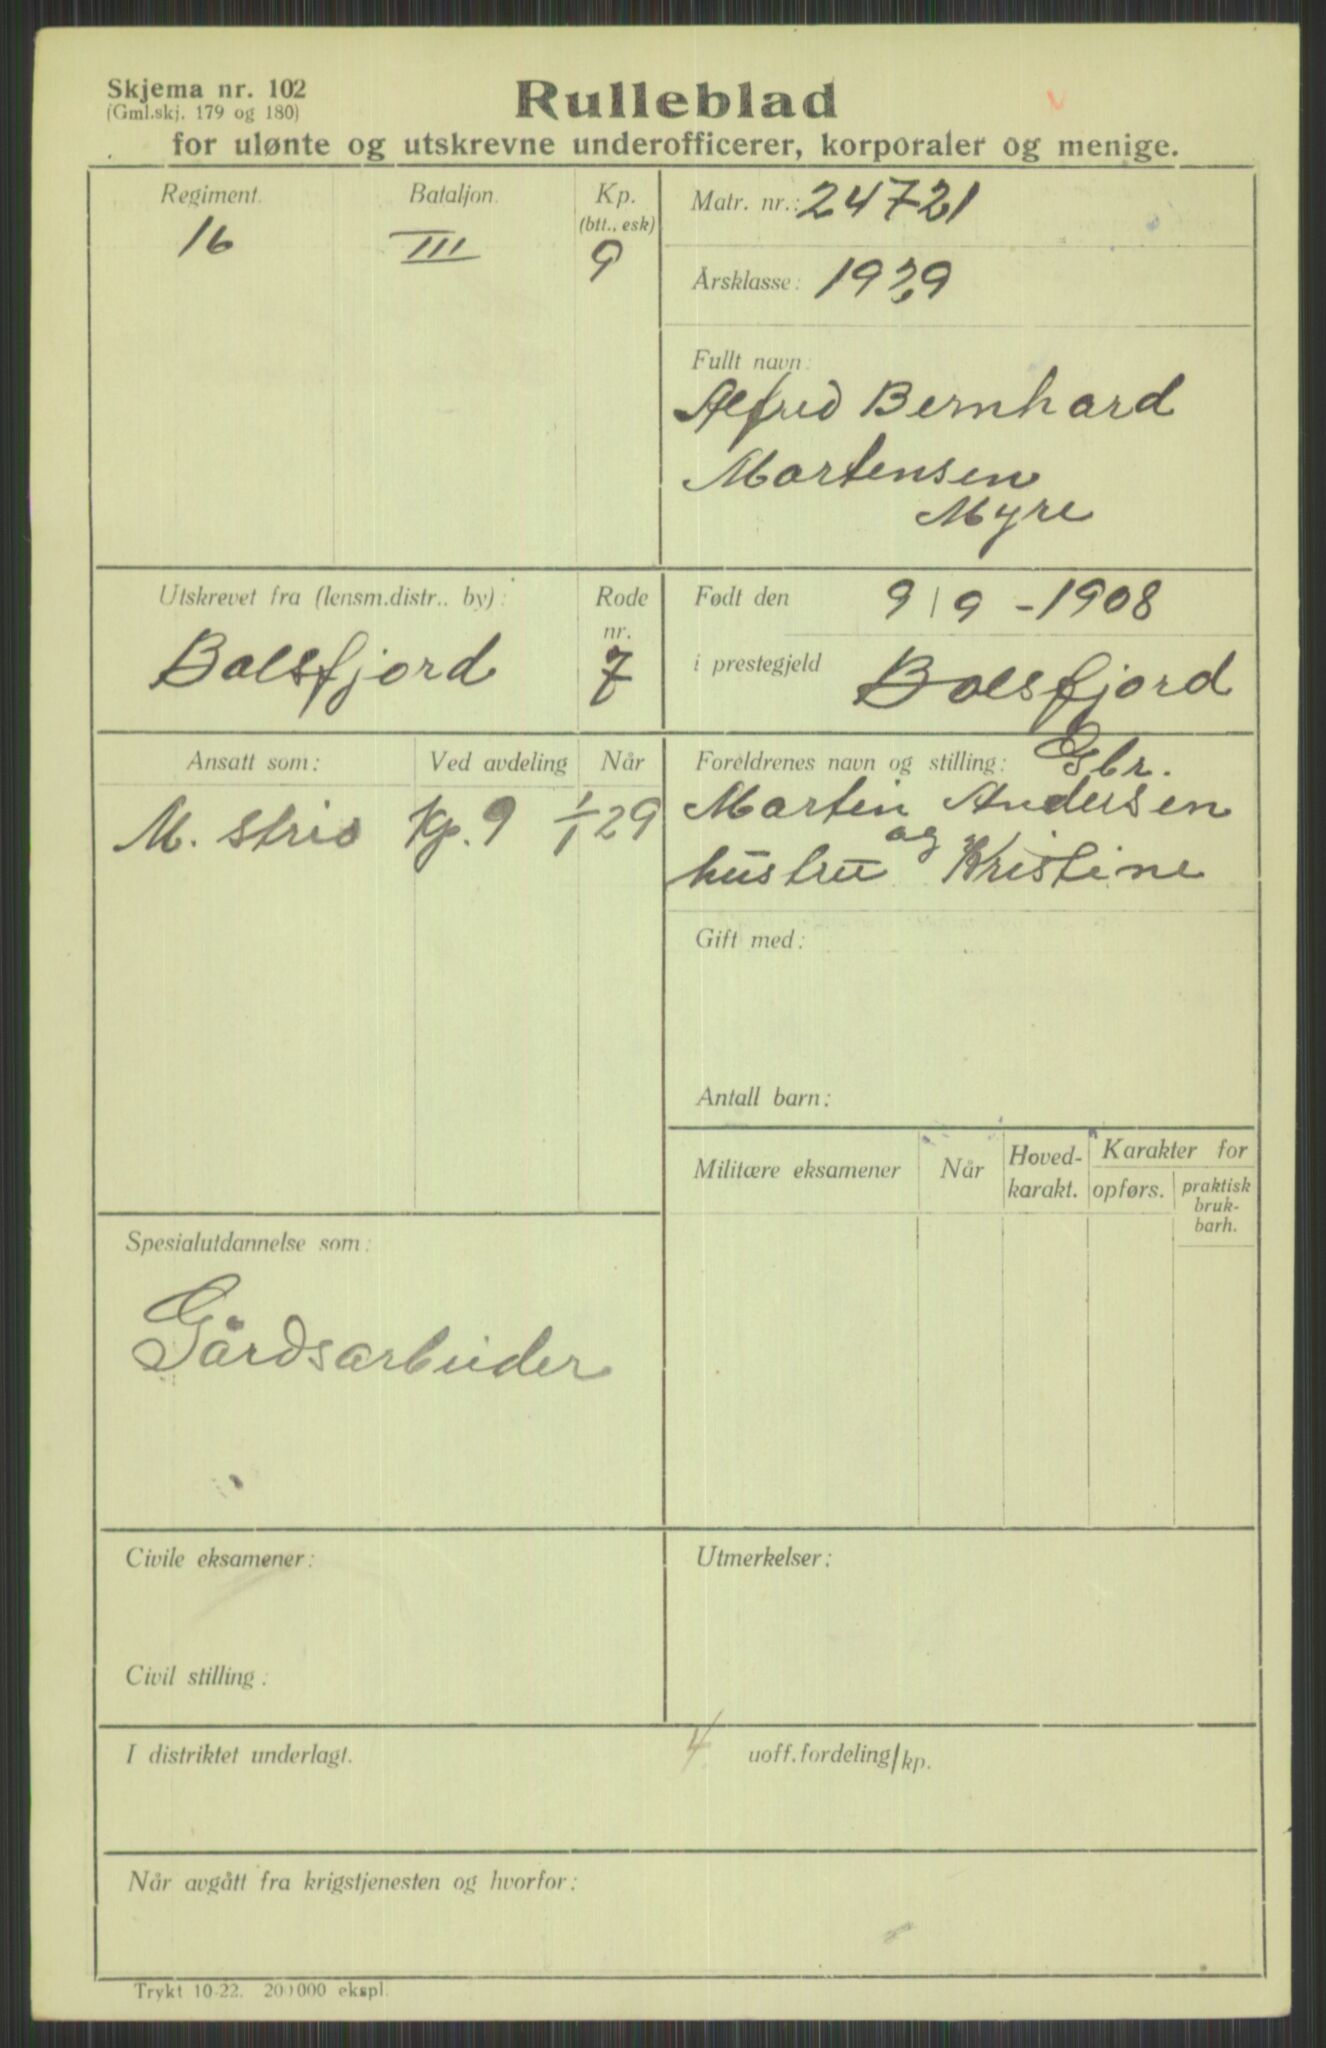 Skjema nr. 102
(Gml.skj. 179 og 180)
Rulleblad
for ulønte og utskrevne underofficerer, korporaler og menige.
Regiment.
16
Bataljon.
III
Kp.
(btt., esk)
9
Matr. nr.: 24721
Årsklasse: 1929
Fullt navn:
Alfred Bernhard
Martensen
Myre
Utskrevet fra (lensm.distr.. by):
Balsfjord
Rode
nr.
7
Født den 9/9 - 1908
i prestegjeld Balsfjord
Ansatt som:
Ved avdeling
Når
M. strid Kp. 9 1/1 29
Foreldrenes navn og stilling: Gbr.
Martin Andersen
og
hustru Kristine
Gift med:
Antall barn:
Militære eksamener
Når
Hoved-
karakt.
Karakter for
opførs.
praktisk
bruk-
barh.
Spesialutdannelse som:
Gårdsarbeider
Civile eksamener:
Civil stilling:
Utmerkelser:
I distriktet underlagt.
4 uoff.fordeling/kp.
Når avgått fra krigstjenesten og hvorfor:
Trykt 10-22. 200000 ekspl.